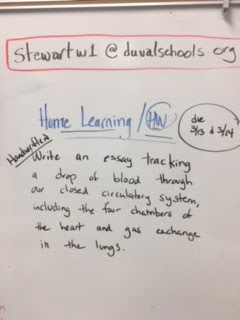 stewartw1 @ duvalschools.org
Home Learning / HW
due
3/13 & 3/14
Handwritten
Write an essay tracking
a drop of blood through
our closed circulatory system,
including the four chambers of
the heart and gas exchange
in the lungs.